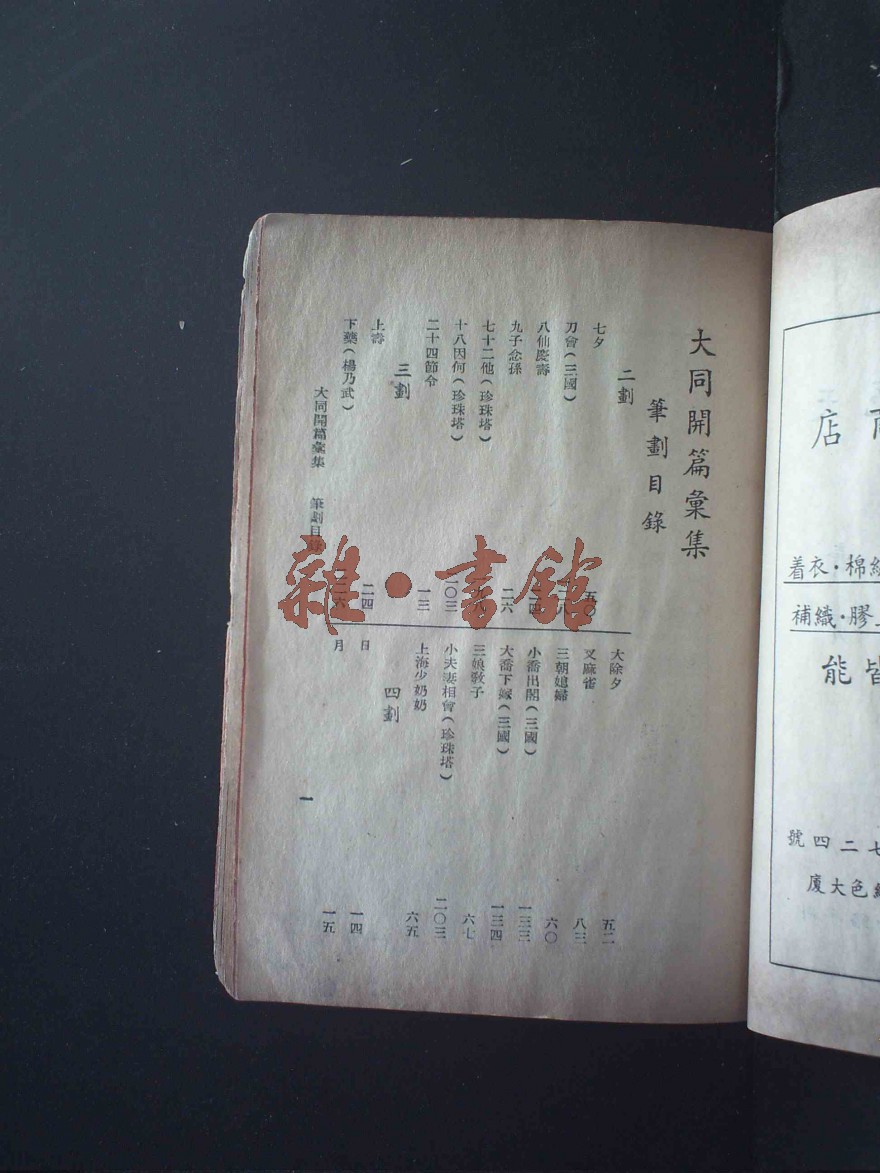 大同開篇彙集
筆劃目錄
二劃
七夕 五〇
刀會(三國)
八仙慶壽
九子念孫 二六
七十二他(珍珠塔)
十八因何(珍珠塔) 一〇三
二十四節令 一三
三劃
上壽 二四
下藥(楊乃武)
大除夕 五二
叉麻雀 八三
三朝媳婦 六〇
小喬出閣(三國) 一三三
大喬下嫁(三國) 一三四
三娘敎子 六七
小夫妻相會(珍珠塔) 二〇三
上海少奶奶 六五
四劃
日 一四
月 一五
大同開篇彙集 筆劃目錄
一
雜·書館
店
着衣·棉
補織·膠
能
號四二七
廈大色